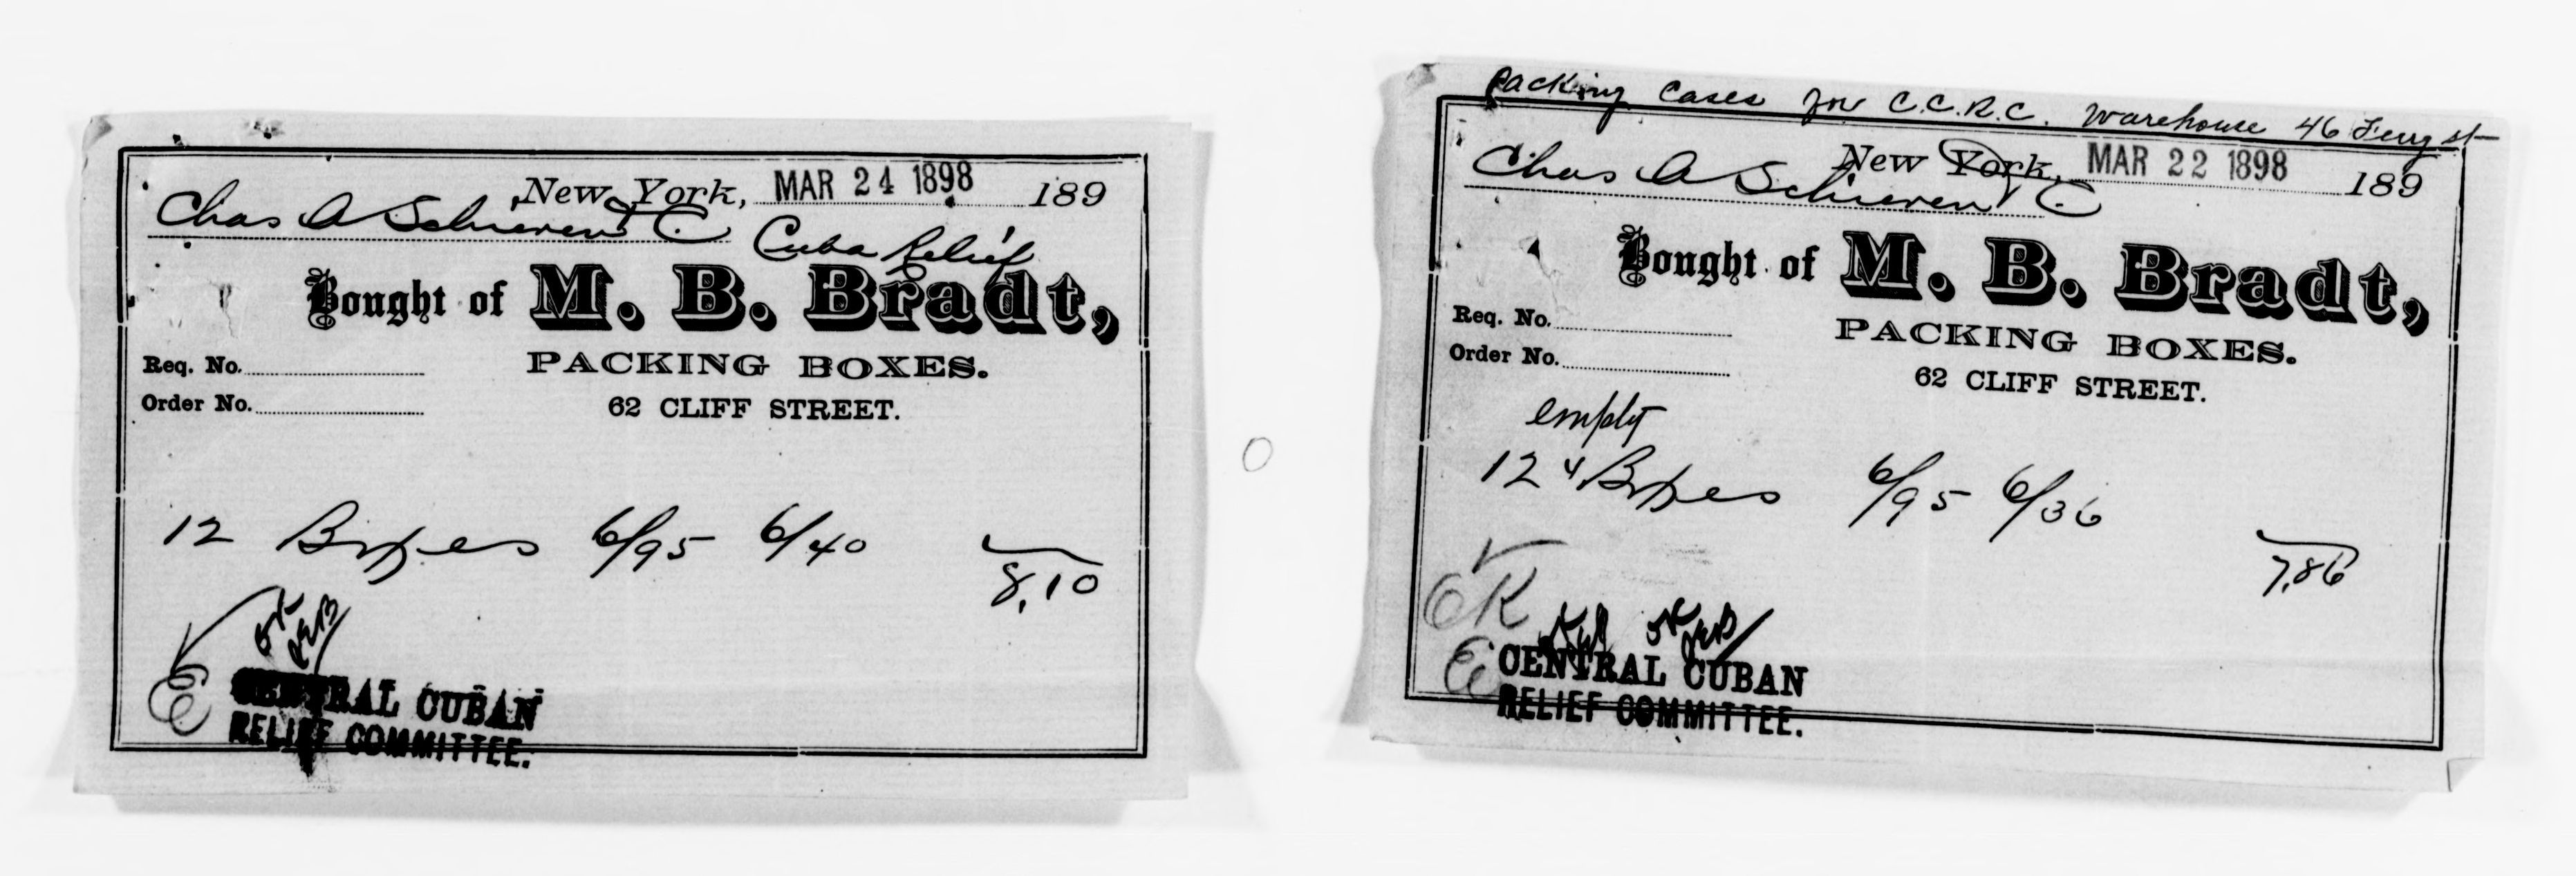 New York, MAR 24 1898 189
Chas A Schieren & Co
Cuba Relief
Bought of M. B. Bradt,
Req. No.
PACKING BOXES.
Order No.
62 CLIFF STREET.
12 Boxes 6/95 6/40
8,10
OK
CENTRAL CUBAN
RELIEF COMMITTEE.
Packing Cases for C.C.R.C. Warehouse 46 Ferry st
New York, MAR 22 1898 189
Chas A Schieren & Co
Bought of M. B. Bradt,
Req. No.
PACKING BOXES.
Order No.
62 CLIFF STREET.
empty
12 Boxes 6/95 6/36
7,86
OK
OK
CENTRAL CUBAN
RELIEF COMMITTEE.